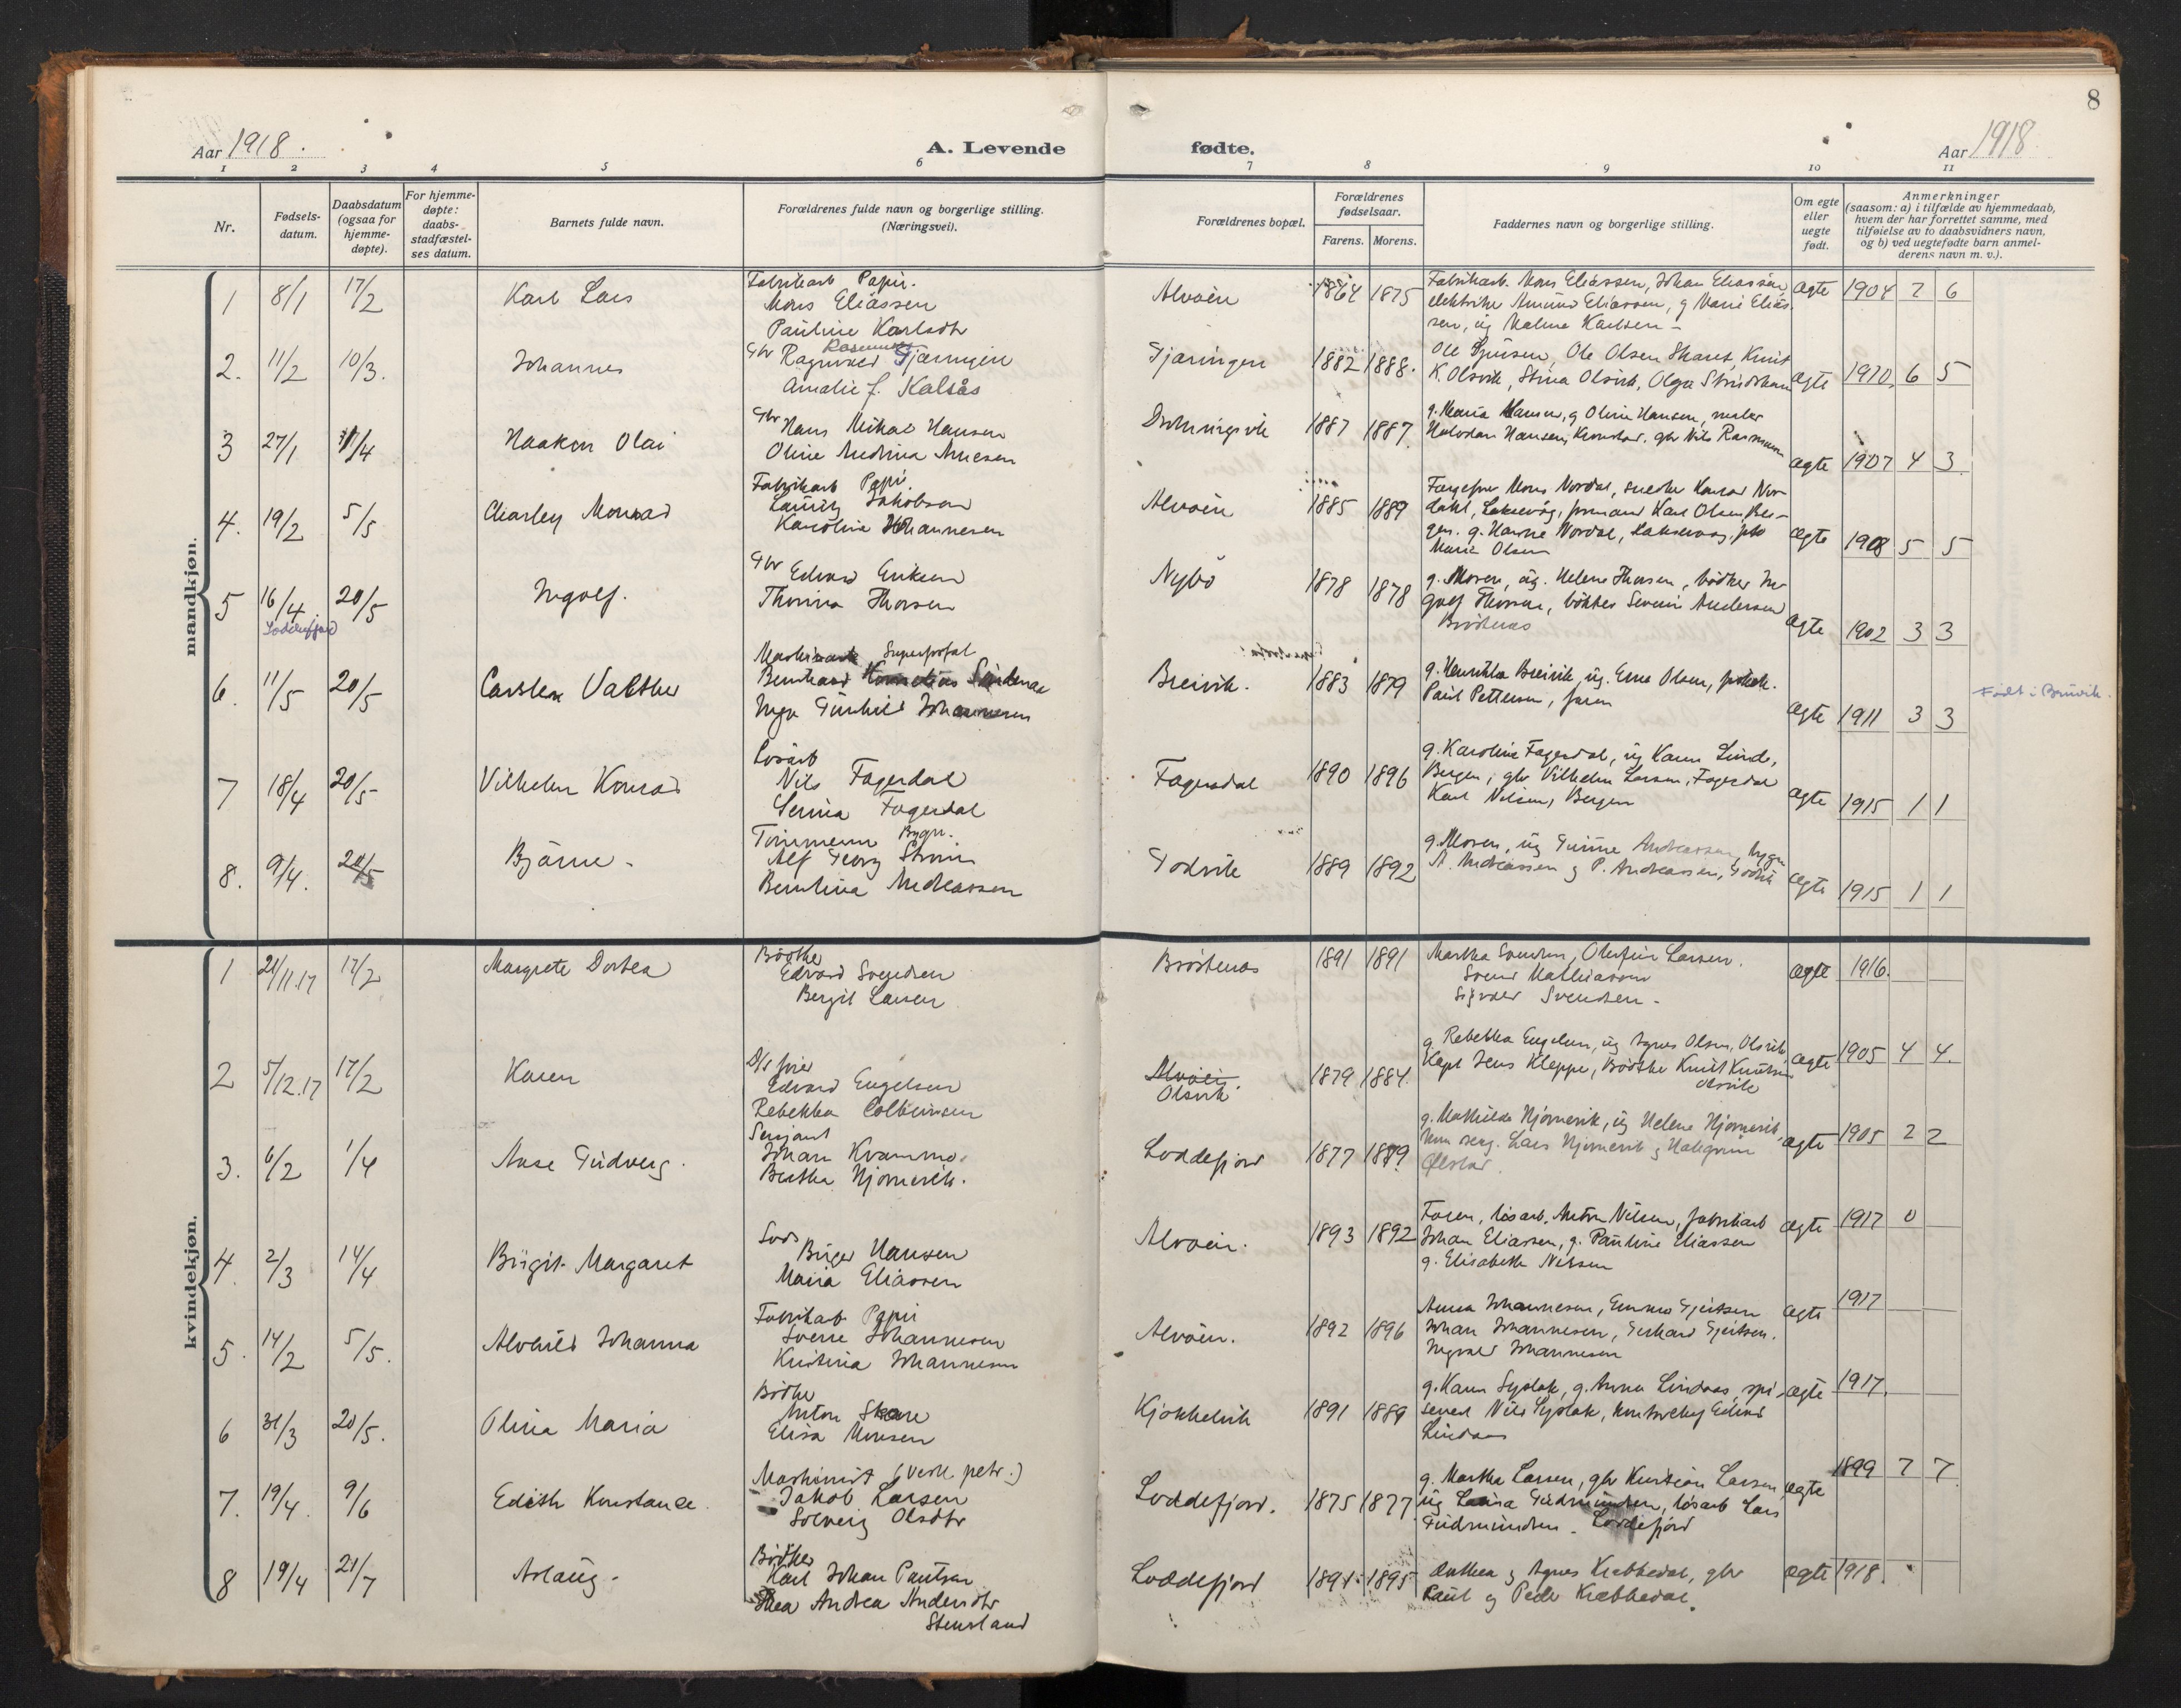 8
Aar 1918.
A. Levende fødte.
Aar 1918
1 2 3 4 5 6 7 8 9 10 11
Nr.
Fødsels-
datum.
Daabsdatum
(ogsaa for
hjemme-
døpte).
For hjemme-
døpte:
daabs-
stadfæstel-
ses datum.
Barnets fulde navn.
Forældrenes fulde navn og borgerlige stilling.
(Næringsvei).
Forældrenes bopæl.
Forældrenes
fødselsaar.
Farens. Morens.
Faddernes navn og borgerlige stilling.
Om egte
eller
uegte
født.
Anmerkninger
(saasom: a) i tilfælde av hjemmedaab,
hvem der har forrettet samme, med
tilføielse av to daabsvidners navn,
og b) ved uegtefødte barn anmel-
derens navn m. v.).
mandkjøn.
1 8/1 17/2 Karl Lars
Fabrikarb Papir.
Mons Eliassen
Pauline Karlsdtr
Alvøen 1864 1875
Fabrikarb. Mons Eliassen, Johan Eliassen,
elektriker Amund Eliassen, g Marie Elias-
sen, ug Malene Karlsen
ægte 1904 7 6
2. 11/2 10/3. Johannes
Gbr Ragnvald Rasmussen Gjæringen
Amalie f. Kalsås
Gjæringen 1882 1888.
Ole Olsen Skaret, Knut
K. Olsvik, Stina Olsvik, Olga
ægte 1910 6 5
3 27/1 1/4 Haakon Olai
Gbr Hans Mikal Hansen
Oline Andrina
Drotningsvik 1887 1887
g. Maria Hansen, g Oline Hansen, maler
Halvdan Hansen, gbr Nils Rasmussen
ægte 1907 4 3.
4. 19/2 5/5 Charley Monrad
Fabrikarb Papir.
Lauritz Jakobsen
Karoline Johannesen
Alvøen 1885 1889
Mons Nordal, Konrad Nor-
dahl, Laksevåg, formand Karl Olsen Ber-
gen. g. Hanne Nordal, Laksevaag,
Marie Olsen
ægte 1908 5 5
5 16/4. 20/5 Ingolf.
Loddefjord
Gbr Edvard Eriksen
Thorina Thorsen
Nybø 1878 1878
g. Moren, ug. Helene Thorsen, bødker In-
golf Thorsen, bøkker Severin Andersen
Brøstenes
ægte 1902 3 3
6. 11/5 20/5 Carsten Valther
Superfosfat
Bernhard
Inga Gunhild Johannesen
Breivik. 1883 1879
g. Henrikka Breivik, ug. Erna Olsen,
Paul Pettersen, faren
ægte 1911 3 3
Født i Breivik.
7 18/4 20/5 Vilhelm Konrad
Løsarb
Nils Fagerdal
Serina Fagerdal
Fagerdal 1890 1896
g. Karoline Fagerdal, ug Karen Lund,
Bergen, gbr Vilhelm Larsen, Fagerdal
Karl Nilsen, Bergen
ægte 1915 1 1
8. 9/4. 20/5 Bjarne
Tømmerm Bygn.
Alf Georg Strøm
Berntina Andreassen
Godvik 1889 1892
g. Moren, ug Gunne Andreassen, bygm
A. Andreassen g P. Andreassen, Godvik
ægte 1915 1 1
kvindekjøn.
1 21/11.17 17/2 Margrete Dorthea
Bødker
Edvard Svendsen
Bergit Larsen
Brøstenes 1891 1891
Martha Svendsen, Larsen.
Svend Mathiasen
Sigvald Svendsen
ægte 1916.
2 5/12.17 17/2 Karen
D/s fører
Edvard Engelsen
Rebekka Colbeinsen
Alvøen.
Olsvik 1879 1884.
g. Rebekka Engelsen, ug Agnes Olsen, Olsvik,
Kapt Jens Kleppe, Bødker Knut Knutsen
Olsvik
ægte 1905 4 4.
3. 6/2 1/4 Aase Gudveig.
Sersjant
Johan Kvamme
Bertha Hjørnevik.
Loddefjord 1877 1889
g. Mathilde Hjørnevik, ug Helene Hjørnevik,
Lars Hjørnevik g Hallgrim
ægte 1905 2 2
4. 2/3 14/4 Birgit Margaret
Birger Hansen
Maria Eliassen
Alvøen. 1893 1892
Faren, løsarb. Anton Nilsen, fabrikarb
Johan Eliassen, g. Pauline Eliassen
g. Elisabeth Nilssen
ægte 1917 0
5. 14/2 5/5. Alvhild Johanna
Fabrikab Papir
Sverre Johannesen
Kristina Johannesen
Alvøen. 1892 1896
Anna Johannesen, Emma Gjertsen
Johan Johannesen, Gerhard Gjertsen.
Ingvald Johannesen
ægte 1917
6 31/3 20/5. Olina Maria
Bødker
Anton Skare
Elisa Monsen
Kjøkkelvik 1891 1889
g. Karen Syslak, g. Anna Lindaas,
Nils Syslak, Edvard
Lindaas
ægte 1917.
7. 19/4. 9/6 Edith Konstance.
Maskinist (Vestl. petr.)
Jakob Larsen
Solveig Olsdtr
Loddefjord. 1875 1877
g. Martha Larsen, gbr Kristian Larsen,
ug Gudmundsen, løsarb Lars
Gudmundsen. Loddefjord
ægte 1899 7 7
8 19/4 21/7 Aslaug.
Bødker
Karl Johan Paulsen
Thea Andrea Andersdtr
Stensland
Loddefjord 1891 1895
Anthea g Agnes Krabbedal, gbr
Paul og Peder Krabbedal.
ægte 1918.